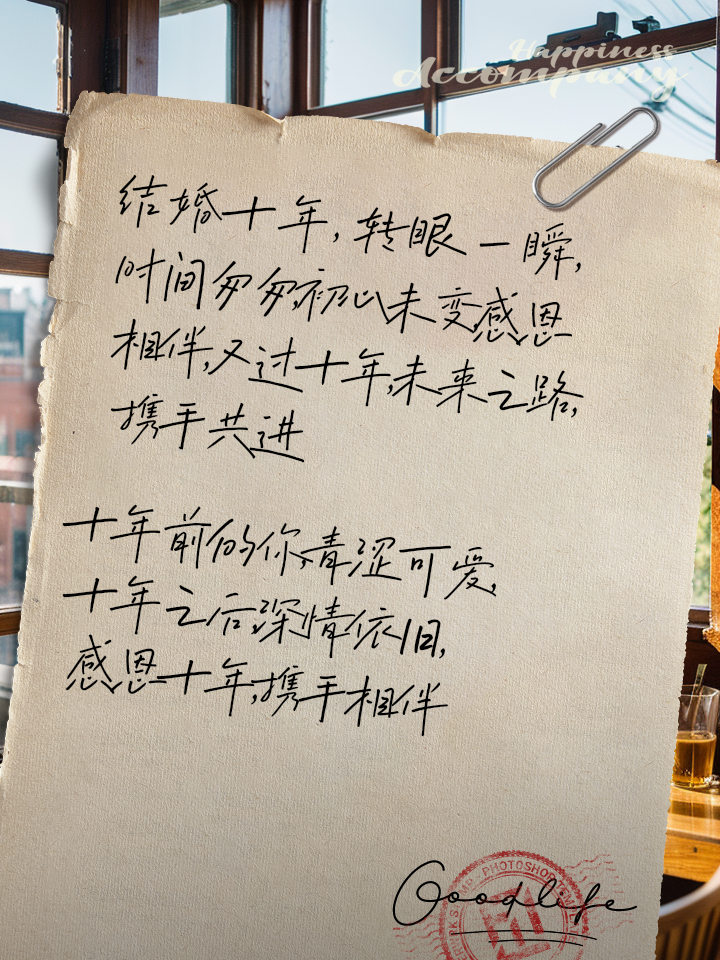 Happiness
Accompany
结婚十年，转眼一瞬，
时间匆匆，初心未变，感恩
相伴，又过十年，未来之路，
携手共进
十年前的你，青涩可爱，
十年之后，深情依旧，
感恩十年，携手相伴
Goodlife